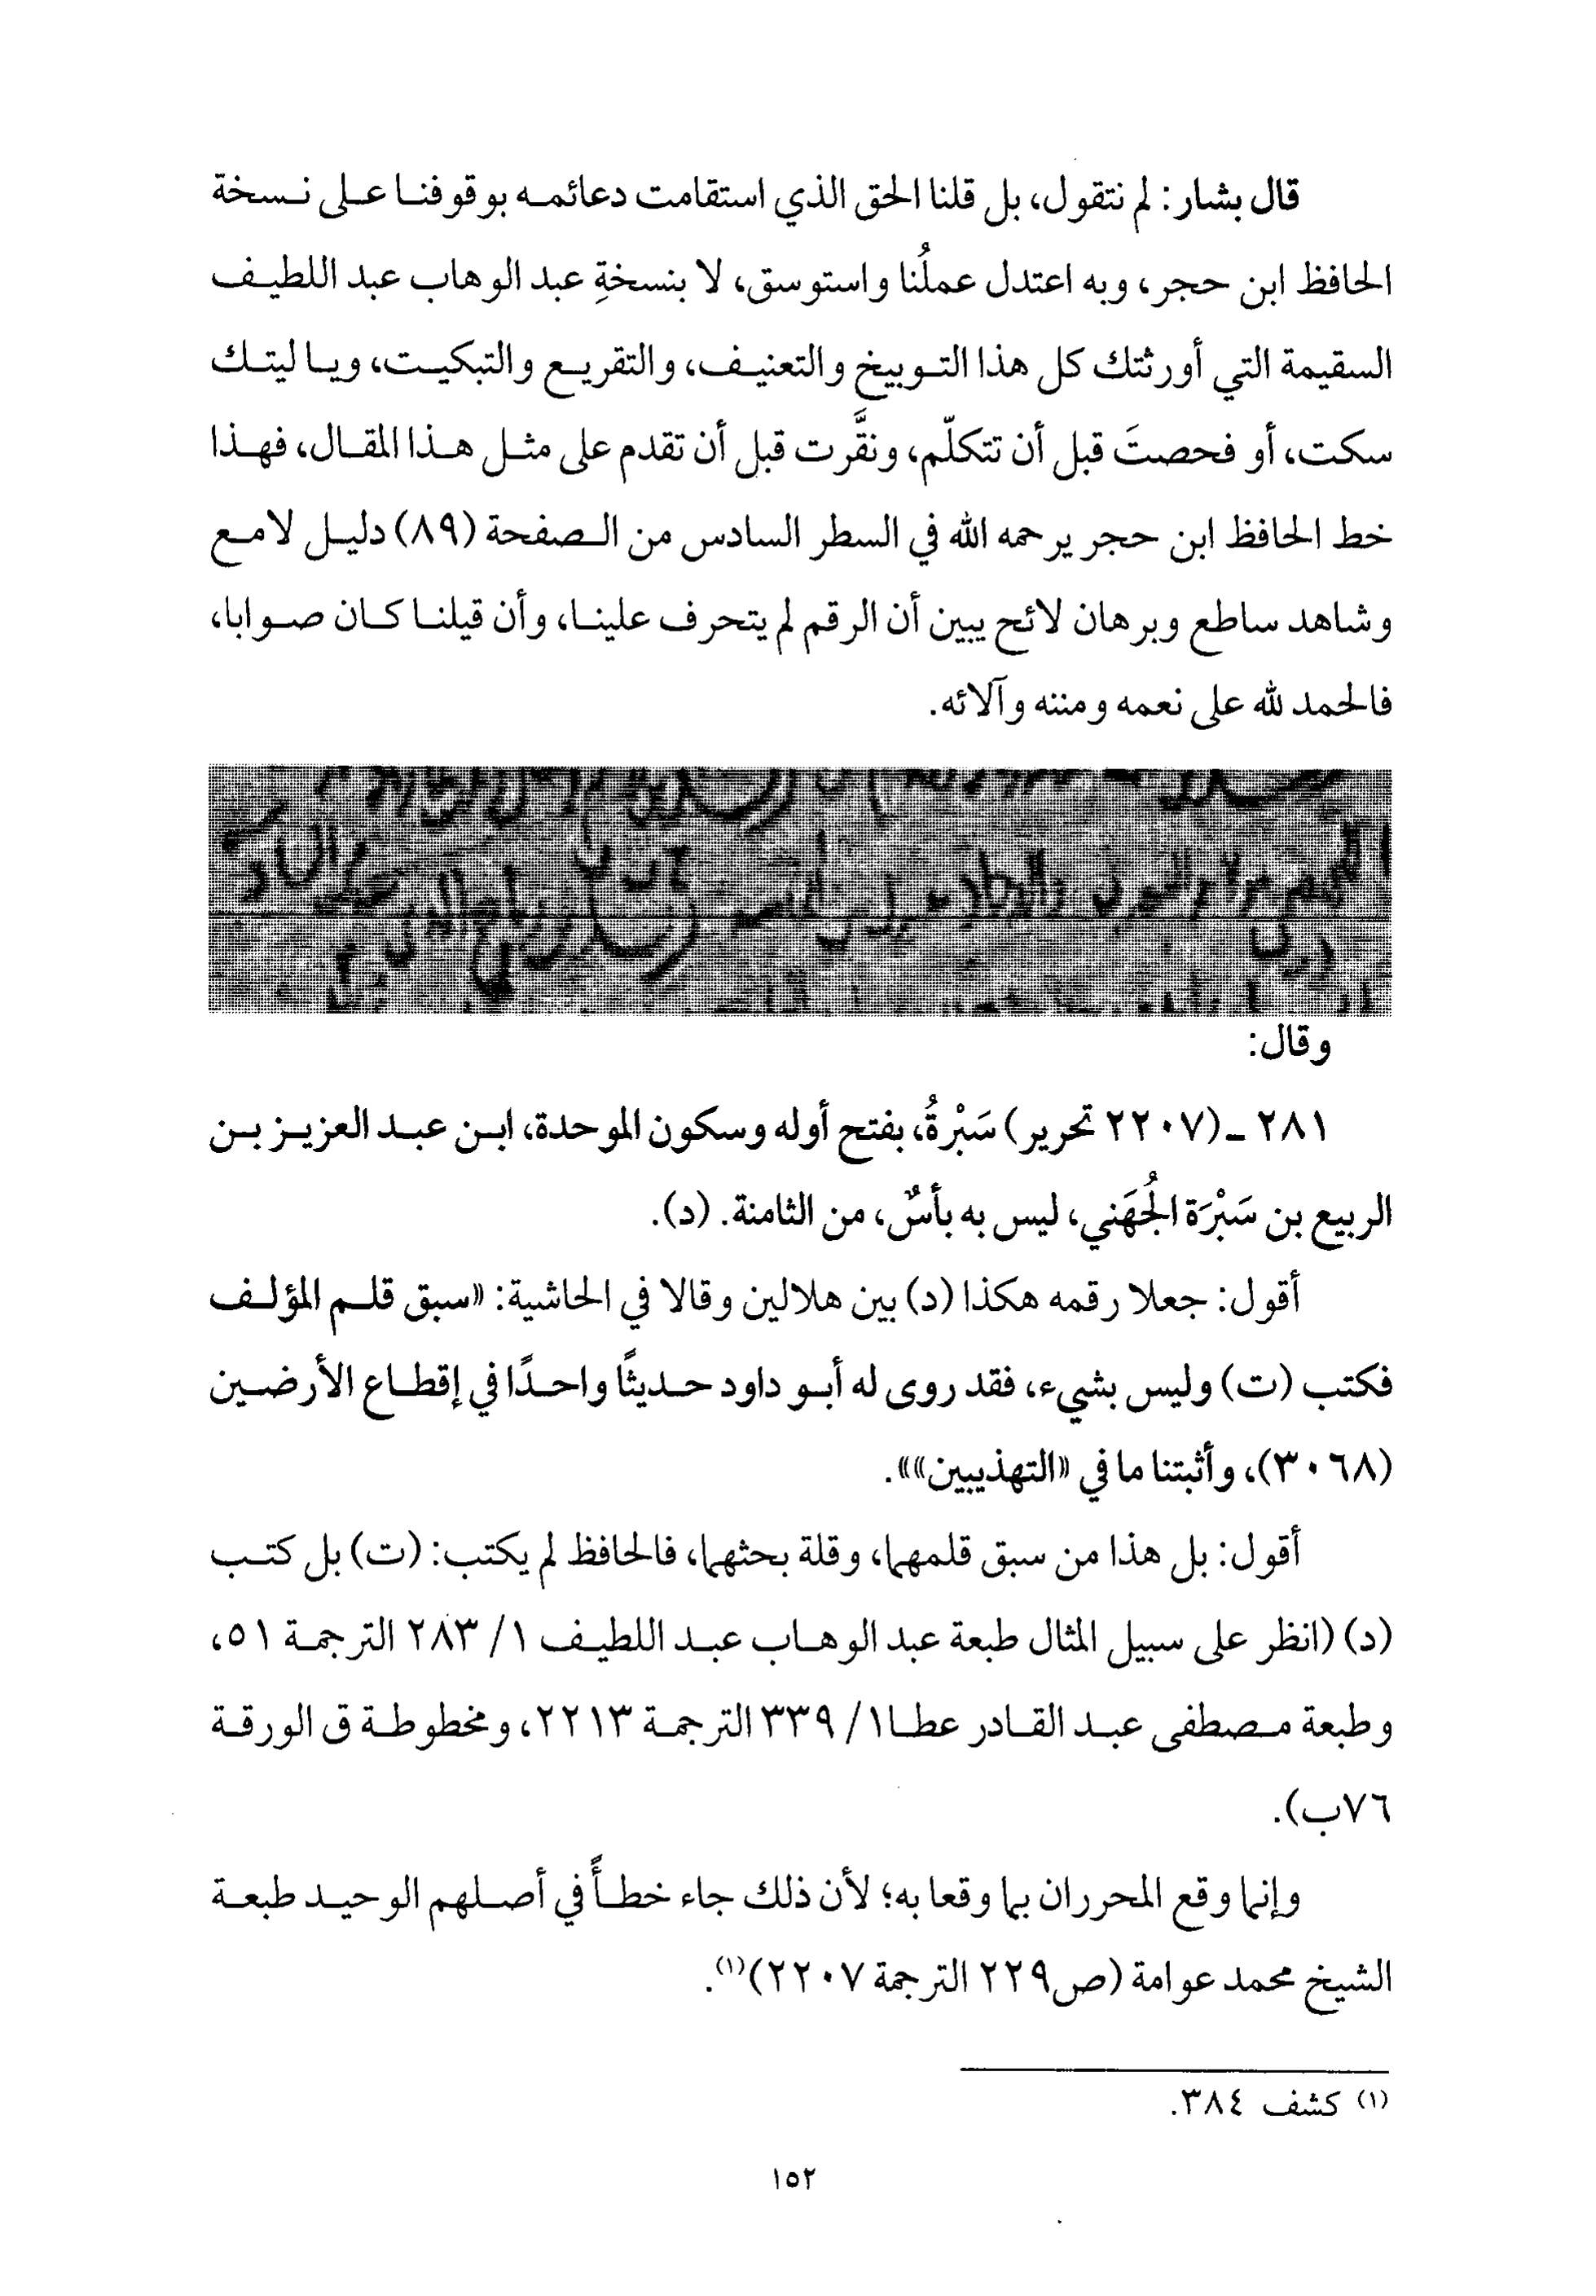 قال بشار: لم نتقول، بل قلنا الحق الذي استقامت دعائمه بوقوفنا على نسخة
الحافظ ابن حجر، وبه اعتدل عملُنا واستوسق، لا بنسخةِ عبد الوهاب عبد اللطيف
السقيمة التي أورثتك كل هذا التوبيخ والتعنيف، والتقريع والتبكيت، ويا ليتك
سكت، أو فحصتَ قبل أن تتكلّم، ونقَّرت قبل أن تقدم على مثل هذا المقال، فهذا
خط الحافظ ابن حجر يرحمه الله في السطر السادس من الصفحة (٨٩) دليل لامع
وشاهد ساطع وبرهان لائح يبين أن الرقم لم يتحرف علينا، وأن قيلنا كان صوابا،
فالحمد لله على نعمه ومننه وآلائه.
وقال:
٢٨١ ـ (٢٢٠٧ تحرير) سَبْرةُ، بفتح أوله وسكون الموحدة، ابن عبد العزيز بن
الربيع بن سَبْرَة الجُهَني، ليس به بأسٌ، من الثامنة. (د).
أقول: جعلا رقمه هكذا (د) بين هلالين وقالا في الحاشية: «سبق قلم المؤلف
فكتب (ت) وليس بشيء، فقد روى له أبو داود حديثًا واحدًا في إقطاع الأرضين
(٣٠٦٨)، وأثبتنا ما في «التهذيبين»».
أقول: بل هذا من سبق قلمهما، وقلة بحثهما، فالحافظ لم يكتب: (ت) بل كتب
(د) (انظر على سبيل المثال طبعة عبد الوهاب عبد اللطيف ١/ ٢٨٣ الترجمة ٥١،
وطبعة مصطفى عبد القادر عطا ١/ ٣٣٩ الترجمة ٢٢١٣، ومخطوطة ق الورقة
٧٦ب).
وإنما وقع المحرران بما وقعا به؛ لأن ذلك جاء خطأً في أصلهم الوحيد طبعة
الشيخ محمد عوامة (ص٢٢٩ الترجمة ٢٢٠٧)(١).
(١) كشف ٣٨٤.
١٥٢